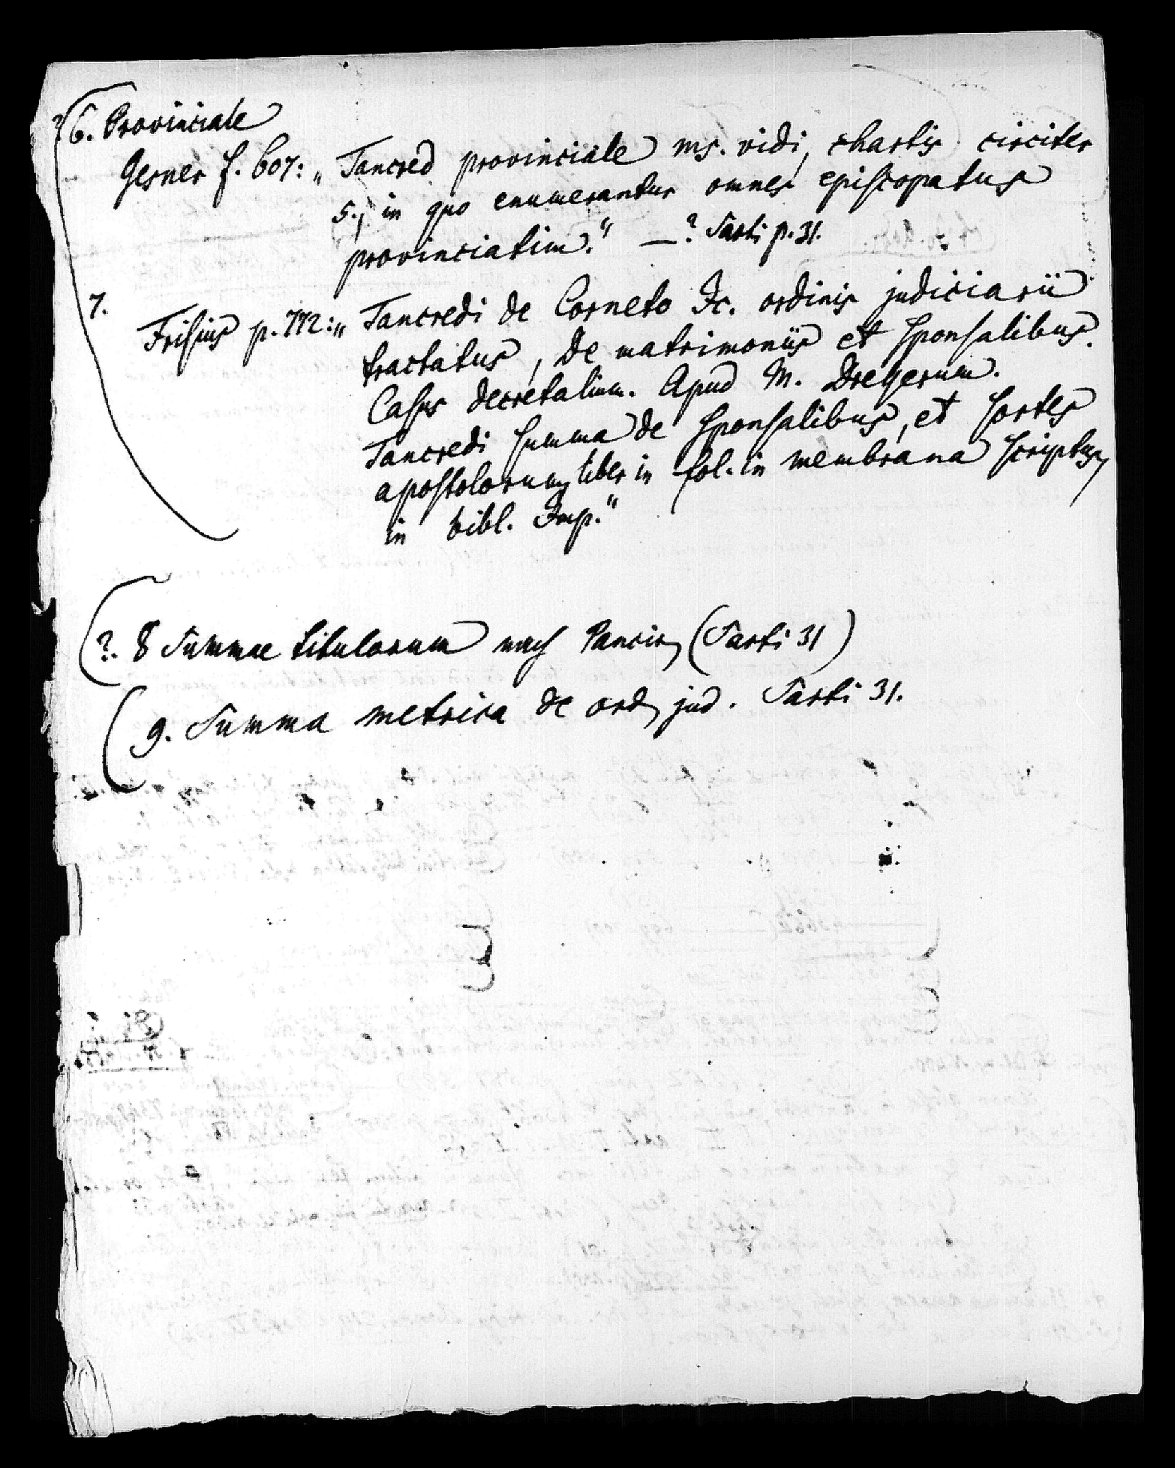 ? 6. Provinciale
Gesner f. 607: „Tancred provinciale ms. vidi, chartis circiter
5., in quo enumerantur omnes episcopatus
provinciatim.“ —? Sarti p. 31.
7.
Frisius p. 772: „Tancredi de Corneto Jc. ordinis judiciarii
tractatus, De matrimoniis et sponsalibus.
Casus decretalium. Apud M. Dreyerum.
Tancredi summa de sponsalibus, et sortes
apostolorum, liber in fol. in membrana scriptus,
in bibl. Imp.“
?. 8 Summae titulorum nach Pancir. (Sarti 31)
9. Summa metrica de ord. jud. Sarti 31.